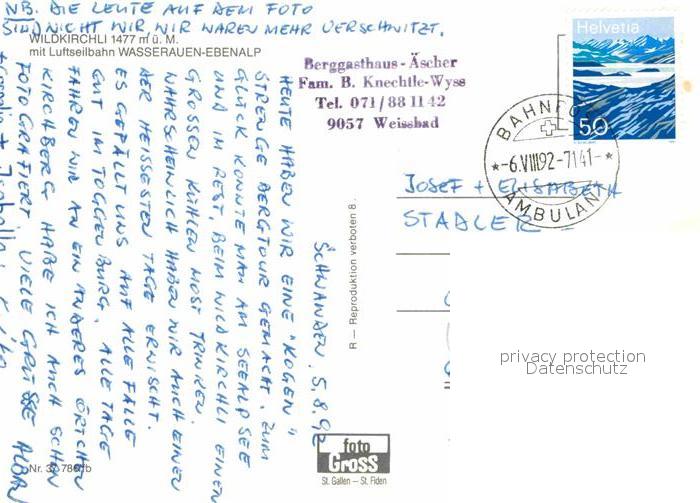 NB. DIE LEUTE AUF DEM FOTO
SIND NICHT WIR WIR WAREN MEHR VERSCHWITZT.
WILDKIRCHLI 1477 m ü. M.
mit Luftseilbahn WASSERAUEN-EBENALP
Berggasthaus - Äscher
Fam. B. Knechtle-Wyss
Tel. 071/88 11 42
9057 Weissbad
Helvetia
50
BAHNPOST
*-6.VIII.92-7141-*
AMBULANT
JOSEF + ELISABETH
STADLER
SCHWANDEN, 5.8.92
HEUTE HABEN WIR EINE "KOGEN"
STRENGE BERGTOUR GEMACHT. ZUM
GLÜCK KONNTE MAN AM SEEALPSEE
UND IM REST. BEIM WILDKIRCHLI EINEN
GROSSEN KÜHLEN MOST TRINKEN.
WAHRSCHEINLICH HABEN WIR AUCH EINEN
DER HEISSESTEN TAGE ERWISCHT.
ES GEFÄLLT UNS AUF ALLE FÄLLE
GUT IM TOGGENBURG, ALLE TAGE
FAHREN WIR AN EIN ANDERES ÖRTCHEN
KIRCHBERG HABE ICH AUCH SCHON
FOTOGRAFIERT VIELE GRÜSSE ALBAN
R — Reproduktion verboten 8.
foto
Gross
St. Gallen — St. Fiden
privacy protection
Datenschutz